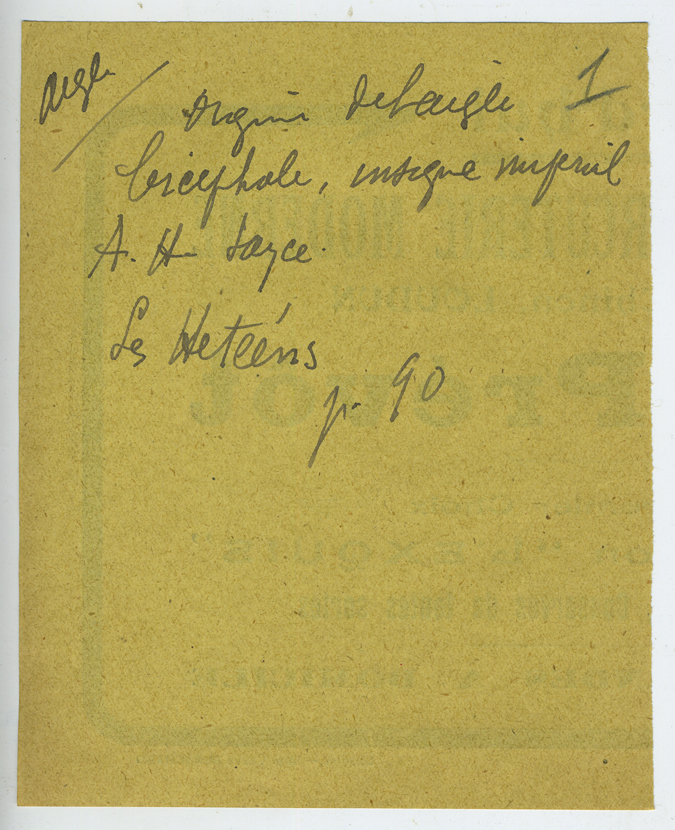 Aigle
1
Origine de l'aigle
bicéphale, insigne impérial
A. H. Sayce.
Les Hétéens
p. 90